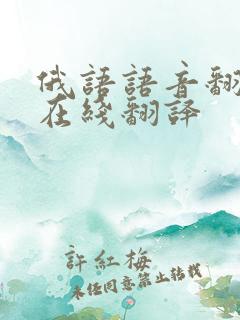 俄語語音翻
在綫翻譯
許紅梅
未經同意禁止轉載